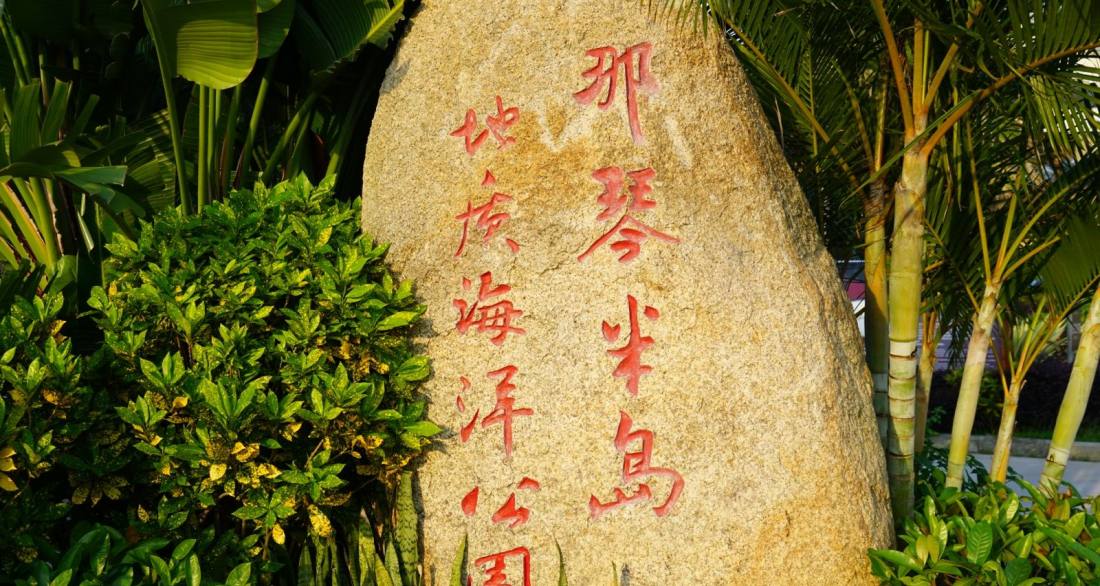 那琴半岛
地质海洋公园